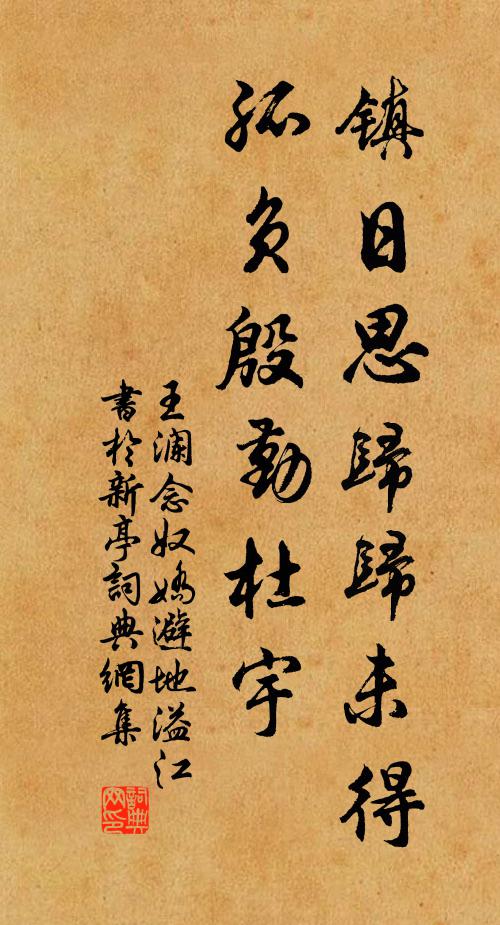 镇日思歸歸未得
孤负殷勤杜宇
王瀾念奴嬌避地溢江
書於新亭詞典網集
詞典网印